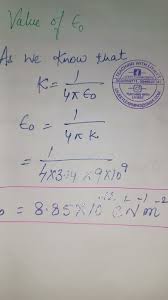 Value of ε₀
As we know that
K = 1/4πε₀
ε₀ = 1/4πk
= 1/4×3.14×9×10⁹
= 8.85×10⁻¹² C² N⁻¹ m⁻²